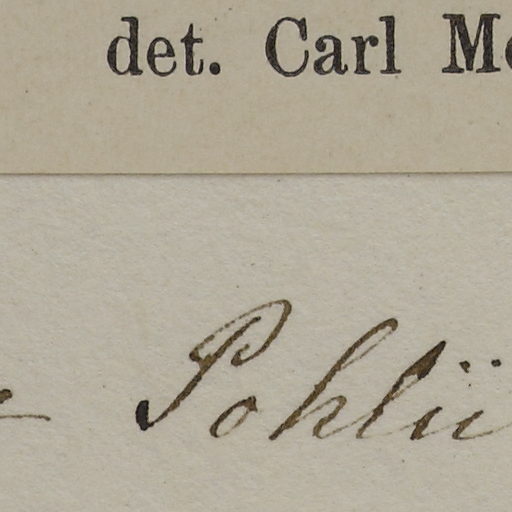 det. Carl Me
Pohlii